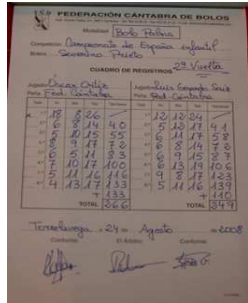 FEDERACIÓN CÁNTABRA DE BOLOS
Modalidad Bolo Palma
Competición Campeonato de España infantil
Bolera Severino Prieto
2ª Vuelta
CUADRO DE REGISTROS
Jugador Oscar Ortiz Jugador Luis Gerardo Saiz
Peña Fed. Cántabra Peña Fed. Cántabra
18 8 26 12 12 24
6 8 14 40 5 12 17 41
5 10 15 55 6 11 17 58
8 9 17 72 6 8 14 72
6 5 11 83 6 9 15 87
7 10 17 100 6 13 19 106
5 11 16 116 9 8 17 123
4 13 17 133 5 11 16 139
+ 133 + 110
TOTAL 266 TOTAL 249
Torrelavega, 24 de Agosto de 2008
Conforme El Árbitro Conforme